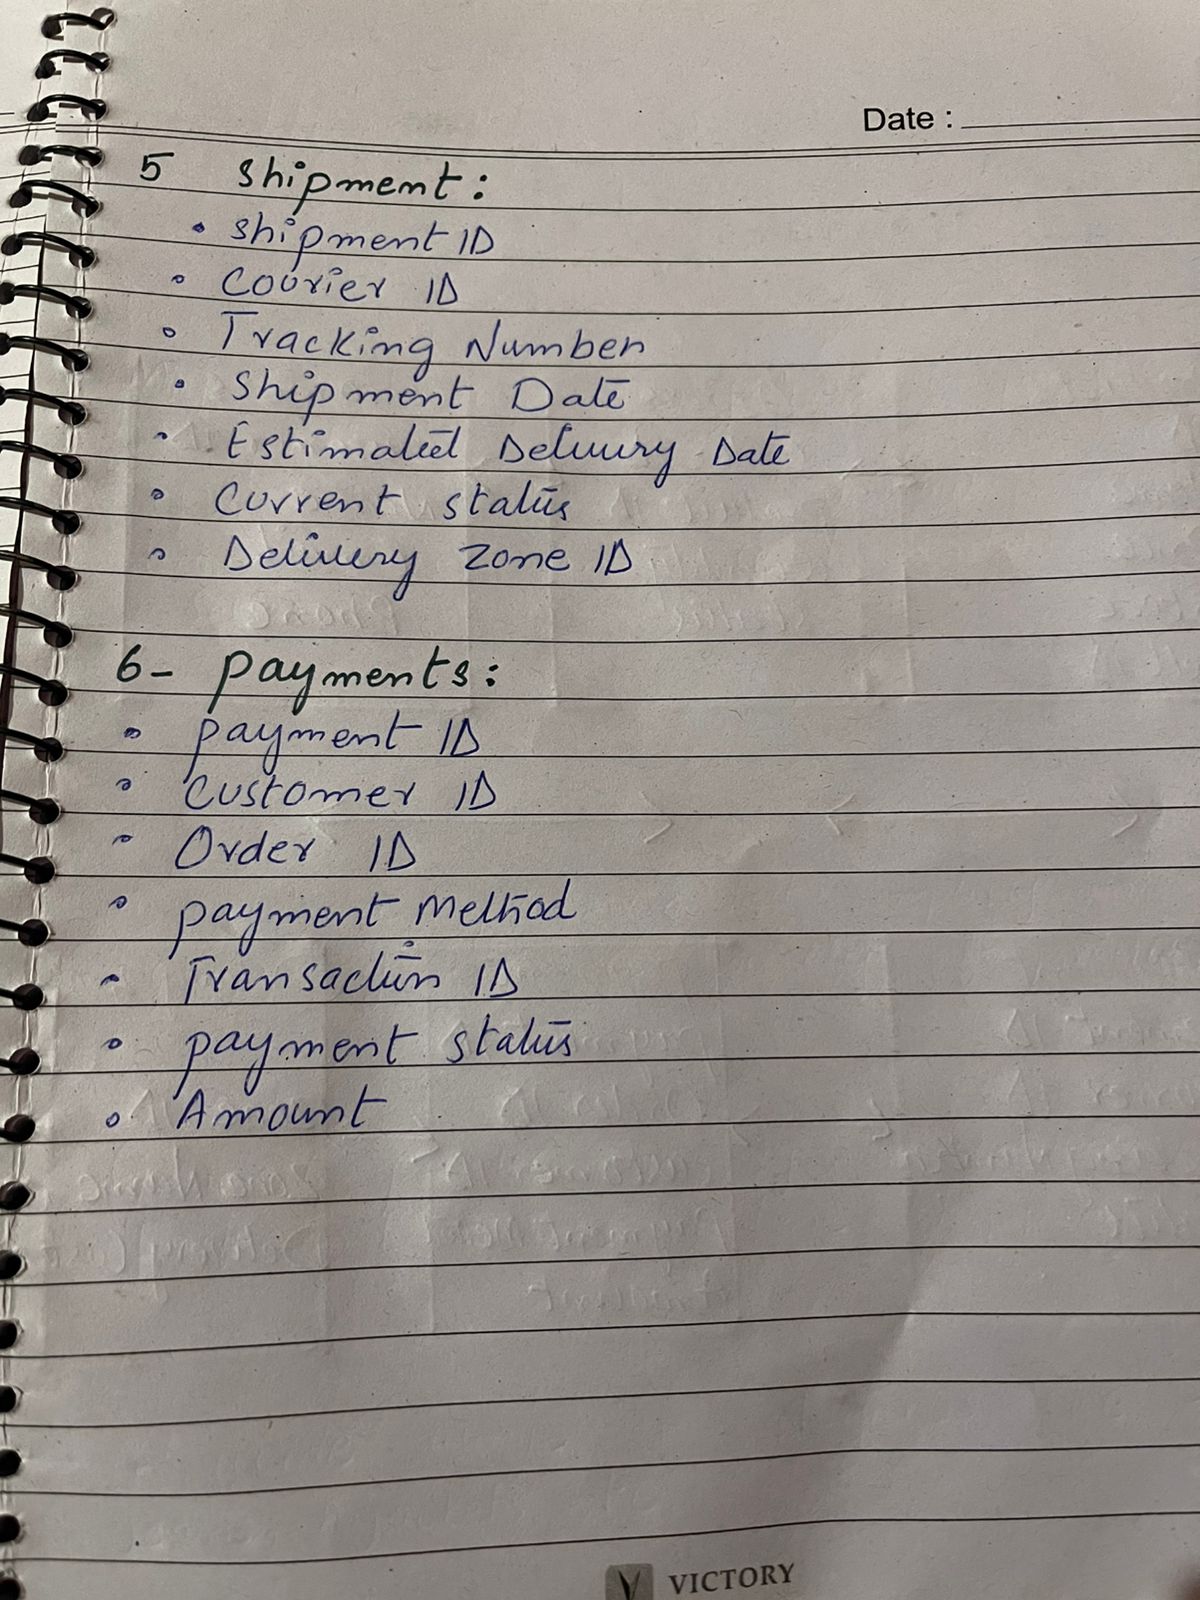 Date :
5 Shipment:
• Shipment ID
• Courier ID
• Tracking Number
• Shipment Date
• Estimated Delivery Date
• Current status
• Delivery Zone ID
6- payments:
• payment ID
• Customer ID
• Order ID
• payment Method
• Transaction ID
• payment status
• Amount
VICTORY